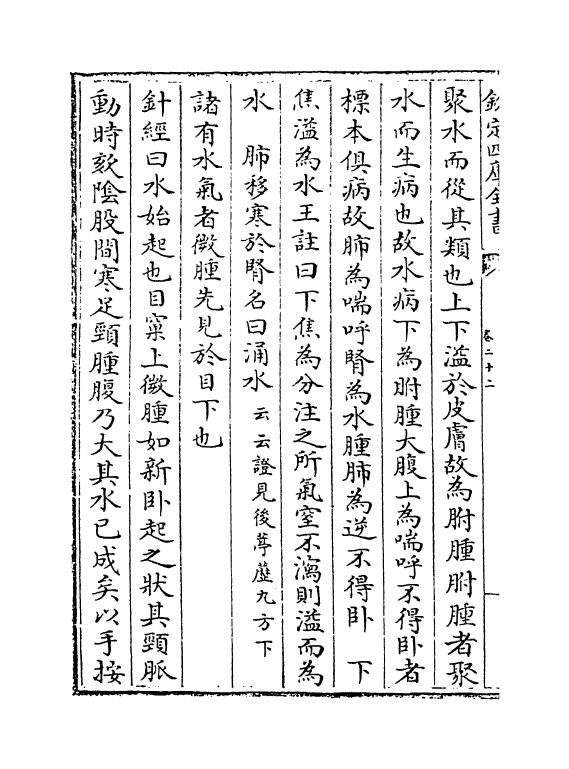 欽定四庫全書
卷二十二
聚水而從其類也上下溢於皮膚故為胕腫胕腫者聚
水而生病也故水病下為胕腫大腹上為喘呼不得卧者
標本俱病故肺為喘呼腎為水腫肺為逆不得卧　下
焦溢為水王註曰下焦為分注之所氣窒不瀉則溢而為
水　肺移寒於腎名曰涌水云云證見後葶藶丸方下
諸有水氣者微腫先見於目下也
針經曰水始起也目窠上微腫如新卧起之狀其頸脈
動時欬陰股間寒足頸腫腹乃大其水已成矣以手按